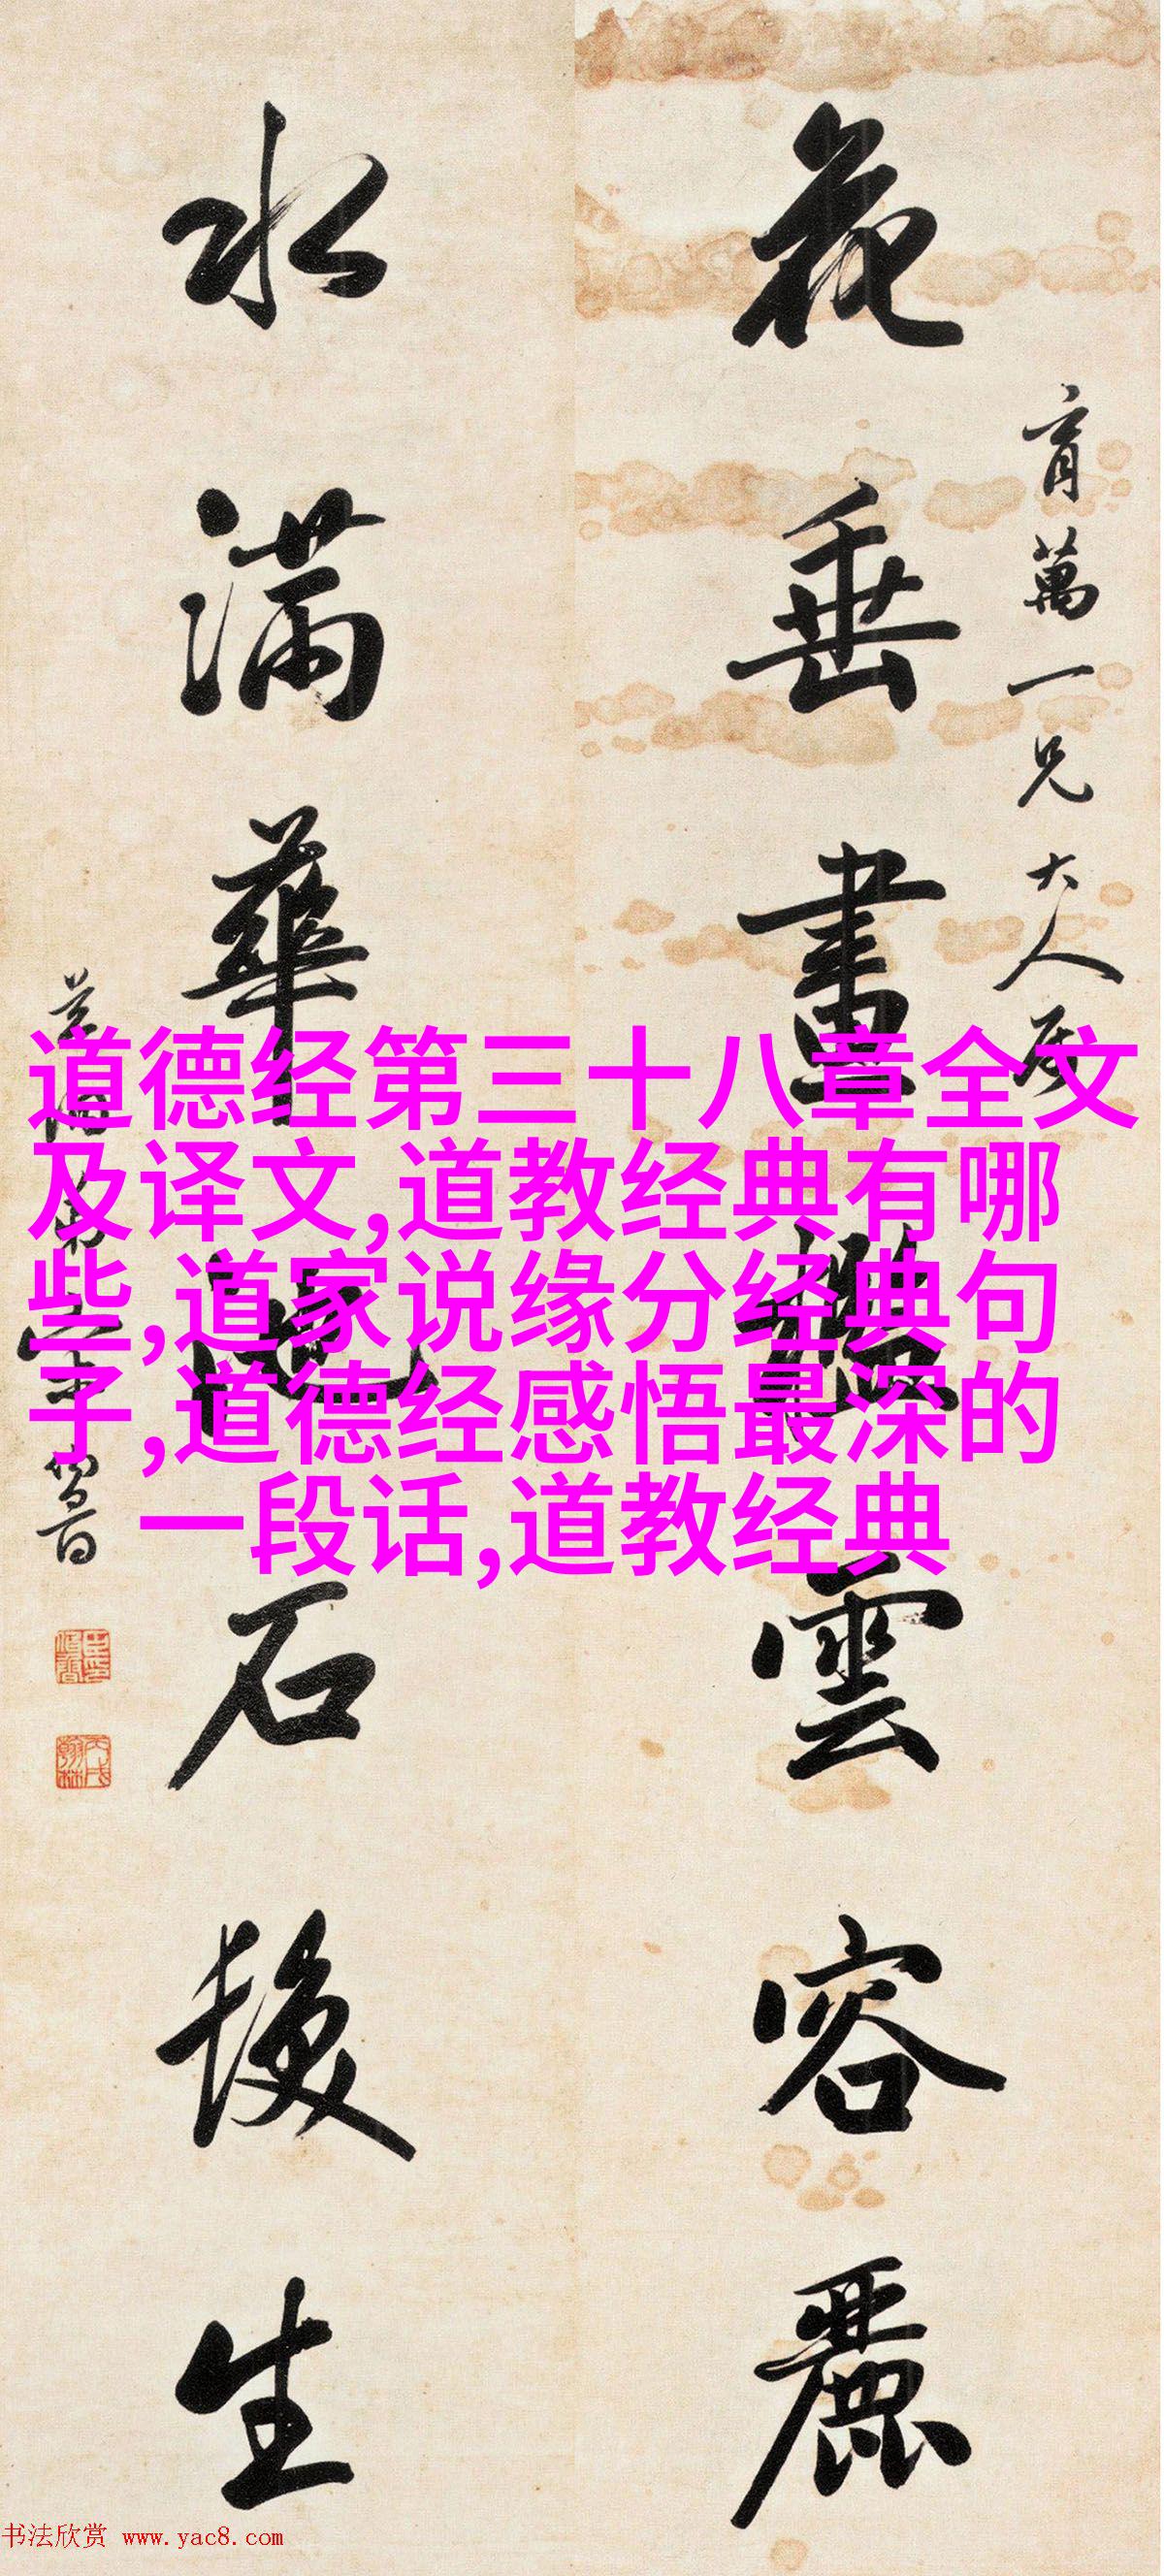 育萬一兄大人屬
花垂畫檻雲容麗
水滿華池石髮生
道德经第三十八章全文
及译文,道教经典有哪
些,道家说缘分经典句
子,道德经感悟最深的
一段话,道教经典
书法欣赏 www.yac8.com